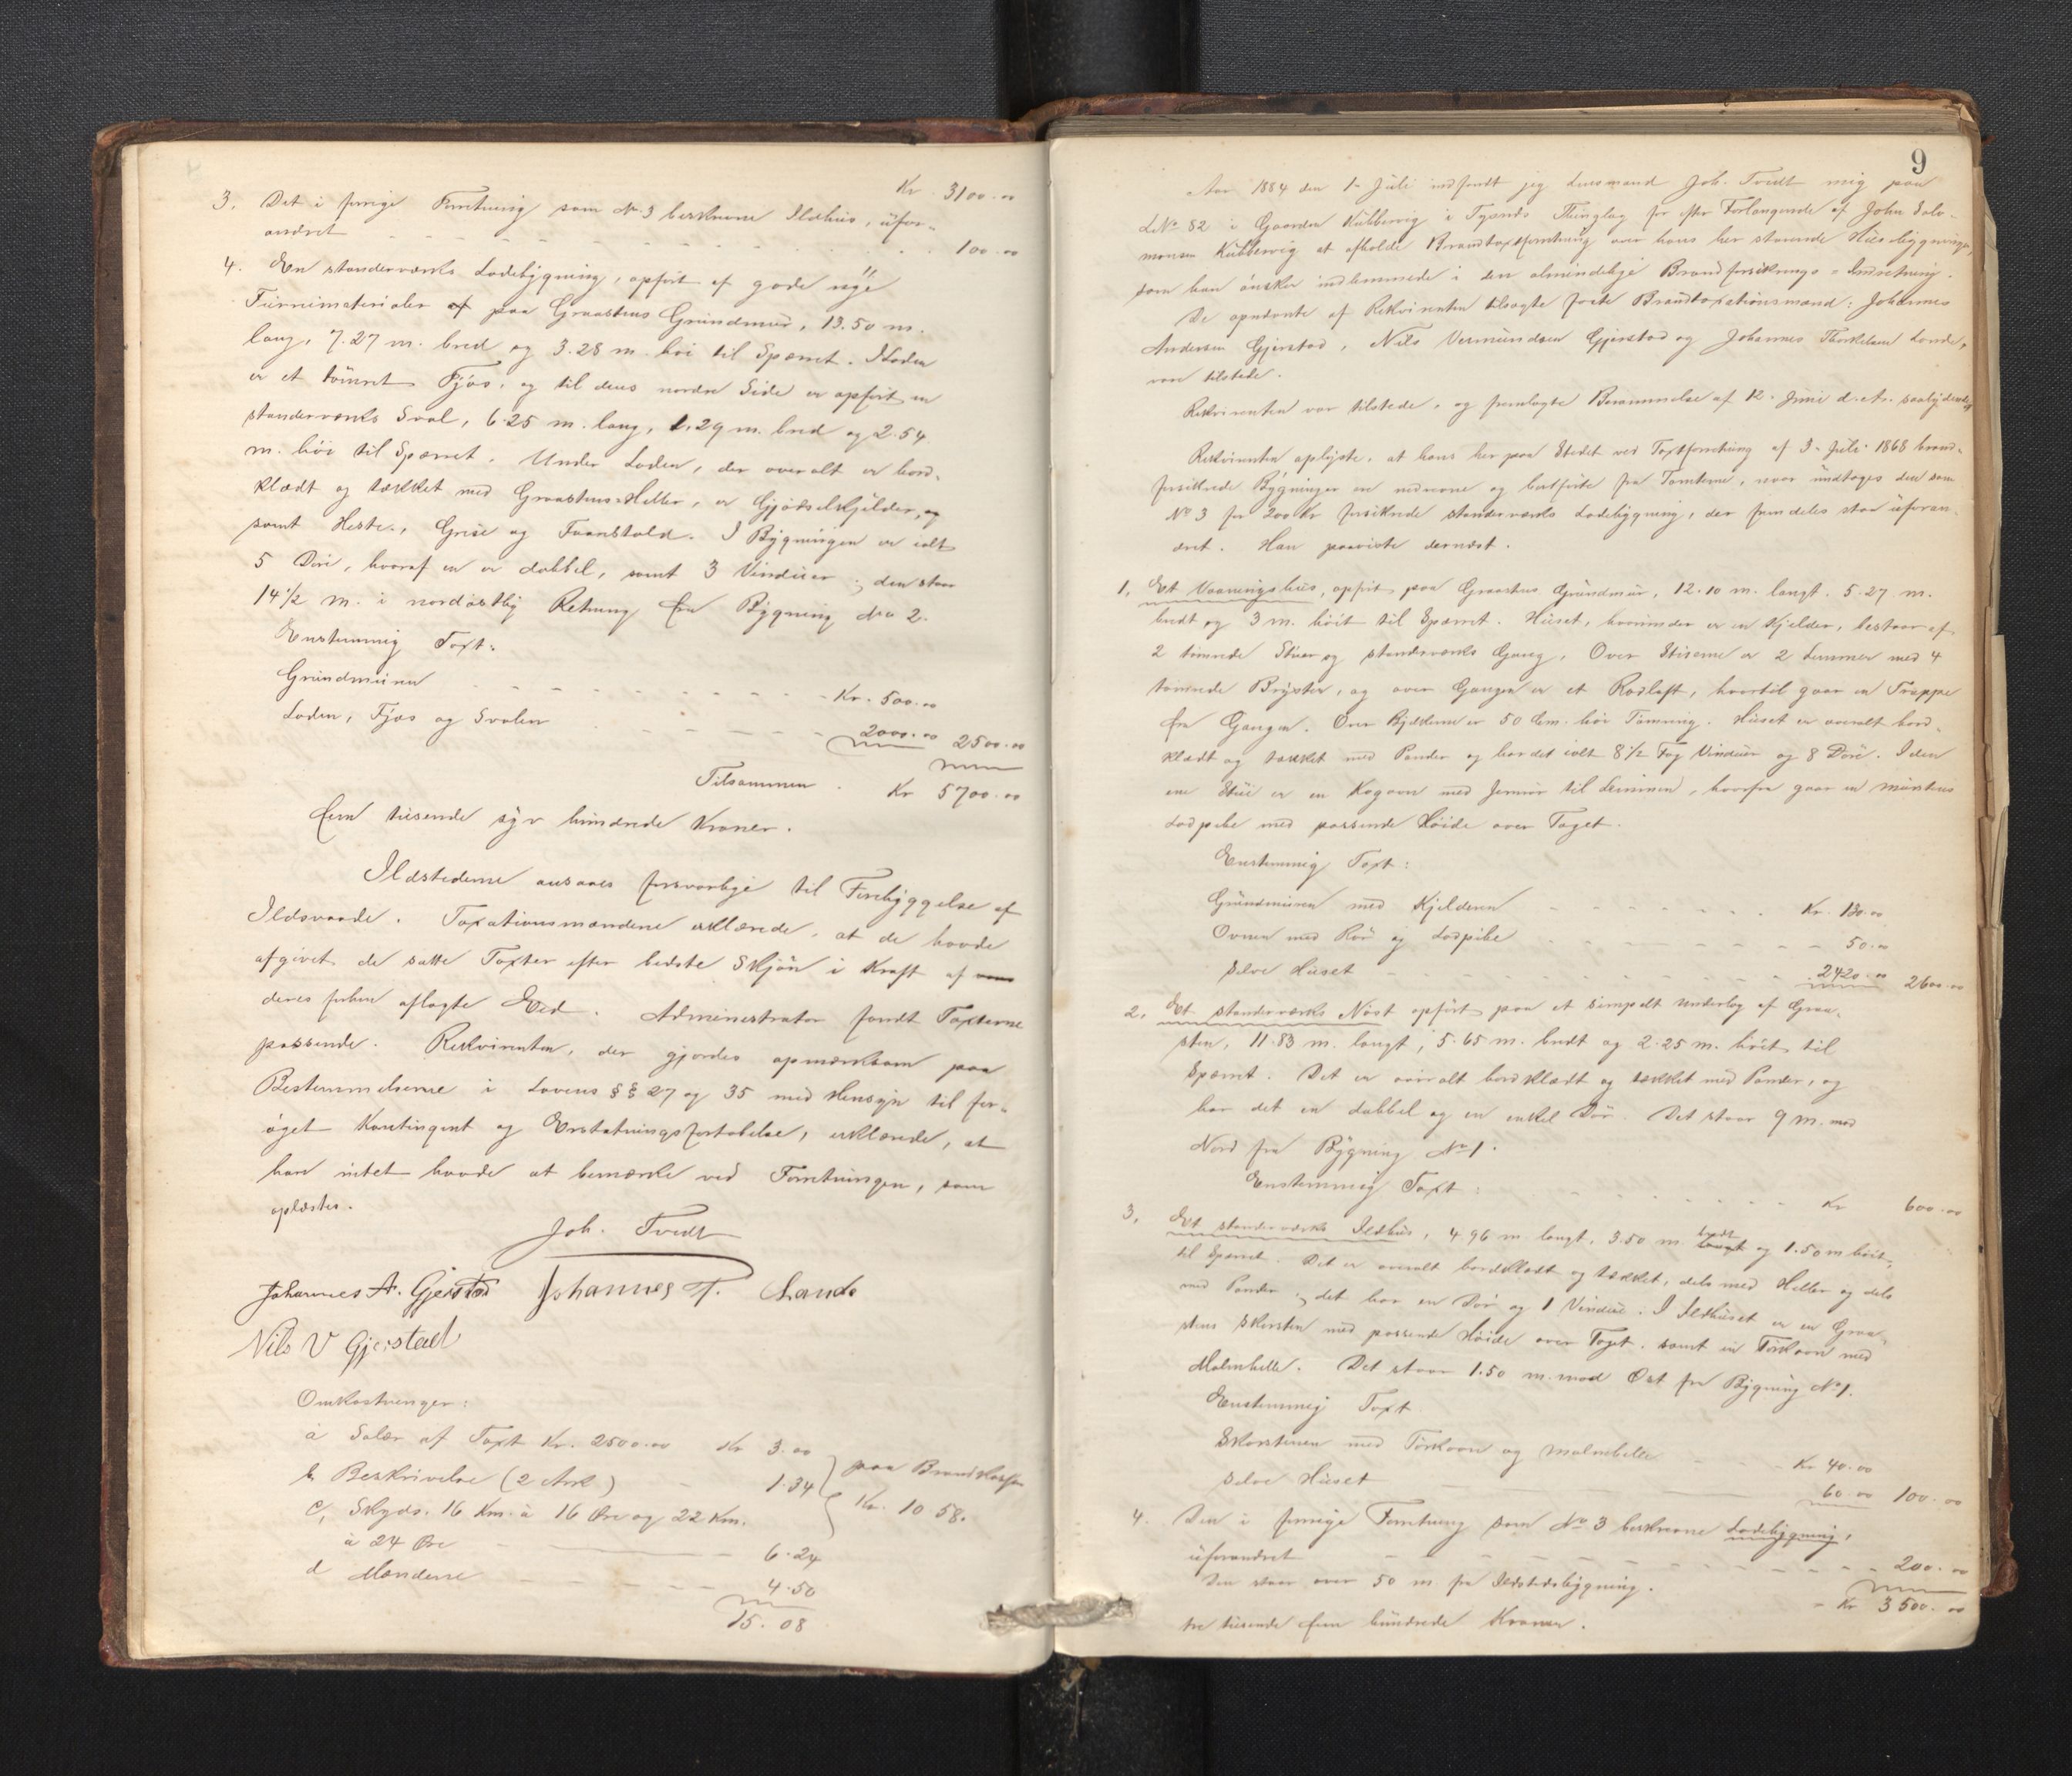 Kr. 3100.00
3. Det i forrige Forretning som No 3 beskrevne Ildhus, ufor-
andret - - - - - - 100.00
4. En standerværks Ladebygning, opført af gode nye
Furrumaterialer af paa Graastens Grundmur, 13.50 m.
lang, 7.27 m. bred og 3.28 m. høi til Sparret. I Laden
er et tømret Fjøs, og til dens nordre Side er opført en
standerværks Sval, 6.25 m. lang, 1.29 m. bred og 2.54
m. høi til Sparret. Under Laden, der overalt er bord-
klædt og tækket med Graastens-Heller, er Gjødselskjelder, og
samt Heste-, Grise og Faarestald. I Bygningen er ialt
5 Døre, hvoraf en er dobbel, samt 3 Vinduer; den staar
14 1/2 m. i nordøstlig Retning fra Bygning No 2.
Enstemmig Taxt:
Grundmuren - - - - - - Kr. 500.00
Laden, Fjøs og Svalen - - - - - - 2000.00 2500.00
Tilsammen Kr 5700.00
fem tusende syv hundrede Kroner.
Ildstederne ansaaes forsvarlige til Forebyggelse af
Ildsvaade. Taxationsmændene erklærede, at de havde
afgivet de satte Taxter efter bedste Skjøn i Kraft af
deres forhen aflagte Eed. Administrator fandt Taxterne
passende. Rekvirenten, der gjordes opmærksom paa
Bestemmelserne i Lovens §§ 27 og 35 med Hensyn til for-
øget Kontingent og Erstatningsfortabelse, erklærede, at
han intet havde at bemærke ved Forretningen, som
oplæstes.
Joh. Tvedt
Johannes A. Gjerstad Johannes T. Lande
Nils V Gjerstad
Omkostninger:
a Salær af Taxt Kr. 2500.00 Kr 3.00
b Beskrivelse (2 Ark) - 1.34
paa Brandkassen
Kr. 10.58.
c, Skyds. 16 Km. à 16 Øre og 22 Km.
à 24 Øre - - 6.24
d Mændene - - - - 4.50
15.08
9
Aar 1884 den 1. Juli indfandt jeg Lensmand Joh. Tvedt mig paa
LNo 82 i Gaarden Kubbervig i Tysnæs Thinglag for efter Forlangende af John Salo-
monsen Kubbervig at afholde Brandtaxtforretning over hans her staaende Husebygninger,
som han ønsker indlemmede i den almindelige Brandforsikrings-Indretning.
De opnævnte af Rekvirenten tilsagte faste Brandtaxationsmænd: Johannes
Andersen Gjerstad, Nils Vermundsen Gjerstad og Johannes Thorkelsen Lande,
var tilstede.
Rekvirenten var tilstede, og fremlagte Berammelse af 12. Juni d. A. saalydende
Rekvirenten oplyste, at hans her paa Stedet ved Taxtforretning af 3. Juli 1868 brand-
forsikrede Bygninger ere nedrevne og bortførte fra Tomterne, naar undtages den som
No 3 for 200 Kr forsikrede standerværks Ladebygning, der fremdeles staar uforan-
dret. Han paaviste dernæst.
1, Et Vaaningshus, opført paa Graastens Grundmur, 12.10 m. langt. 5.27 m.
bredt og 3 m. høit til Sparret. Huset, hvorunder er en Kjelder, bestaar af
2 tømrede Stuer og standerværks Gang. Over Stuerne er 2 Lemmer med 4
tømrede Bryster, og over Gangen er et Rosloft, hvortil gaar en Trappe
fra Gangen. Over Bjelkerne er 50 Cm. høi Tømring. Huset er overalt bord-
klædt og tækket med Pander og har det ialt 8 1/2 Fag Vinduer og 8 Døre. I den
ene Stue er en Kogovn med Jernrør til Lemmen, hvorfra gaar en murstens
Lodpibe med passende Høide over Taget.
Enstemmig Taxt:
Grundmuren med Kjelderen - - - - - - Kr. 130.00
Ovnen med Rør og Lodpibe - - - - - - 50.00
Selve Huset - - - - - - 2420.00 2600.00
2, Et standerværks Nøst opført paa et simpelt Underlag af Graa-
sten, 11.83 m. langt, 5.65 m. bredt og 2.25 m. høit til
Sparret. Det er overalt bordklædt og tækket med Pander, og
har det en dobbel og en enkel Dør. Det staar 9 m. mod
Nord fra Bygning No 1.
Enstemmig Taxt: - - - - - - Kr 600.00
3, Et standerværks Ildhus, 4.96 m. langt, 3.50 m. langt bredt og 1.50 m høit
til Sparret. Det er overalt bordklædt og tækket, dels med Heller og dels
med Pander; det har en Dør og 1 Vindue. I Ildhuset er en Graa-
stens Skorsten med passende Høide over Taget, samt en Tørkovn med
Malmhelle. Det staar 1.50 m. mod Øst fra Bygning No 1.
Enstemmig Taxt
Skorstenen med Tørkovn og Malmhelle - - Kr 40.00
Selve Huset - - - 60.00 100.00
4. Den i forrige Forretning som No 3 beskrevne Ladebygning,
uforandret - - - - - - 200.00
Den staar over 50 m. fra Ildstedsbygning.
- Kr 3500.00
tre tusende fem hundrede Kroner.